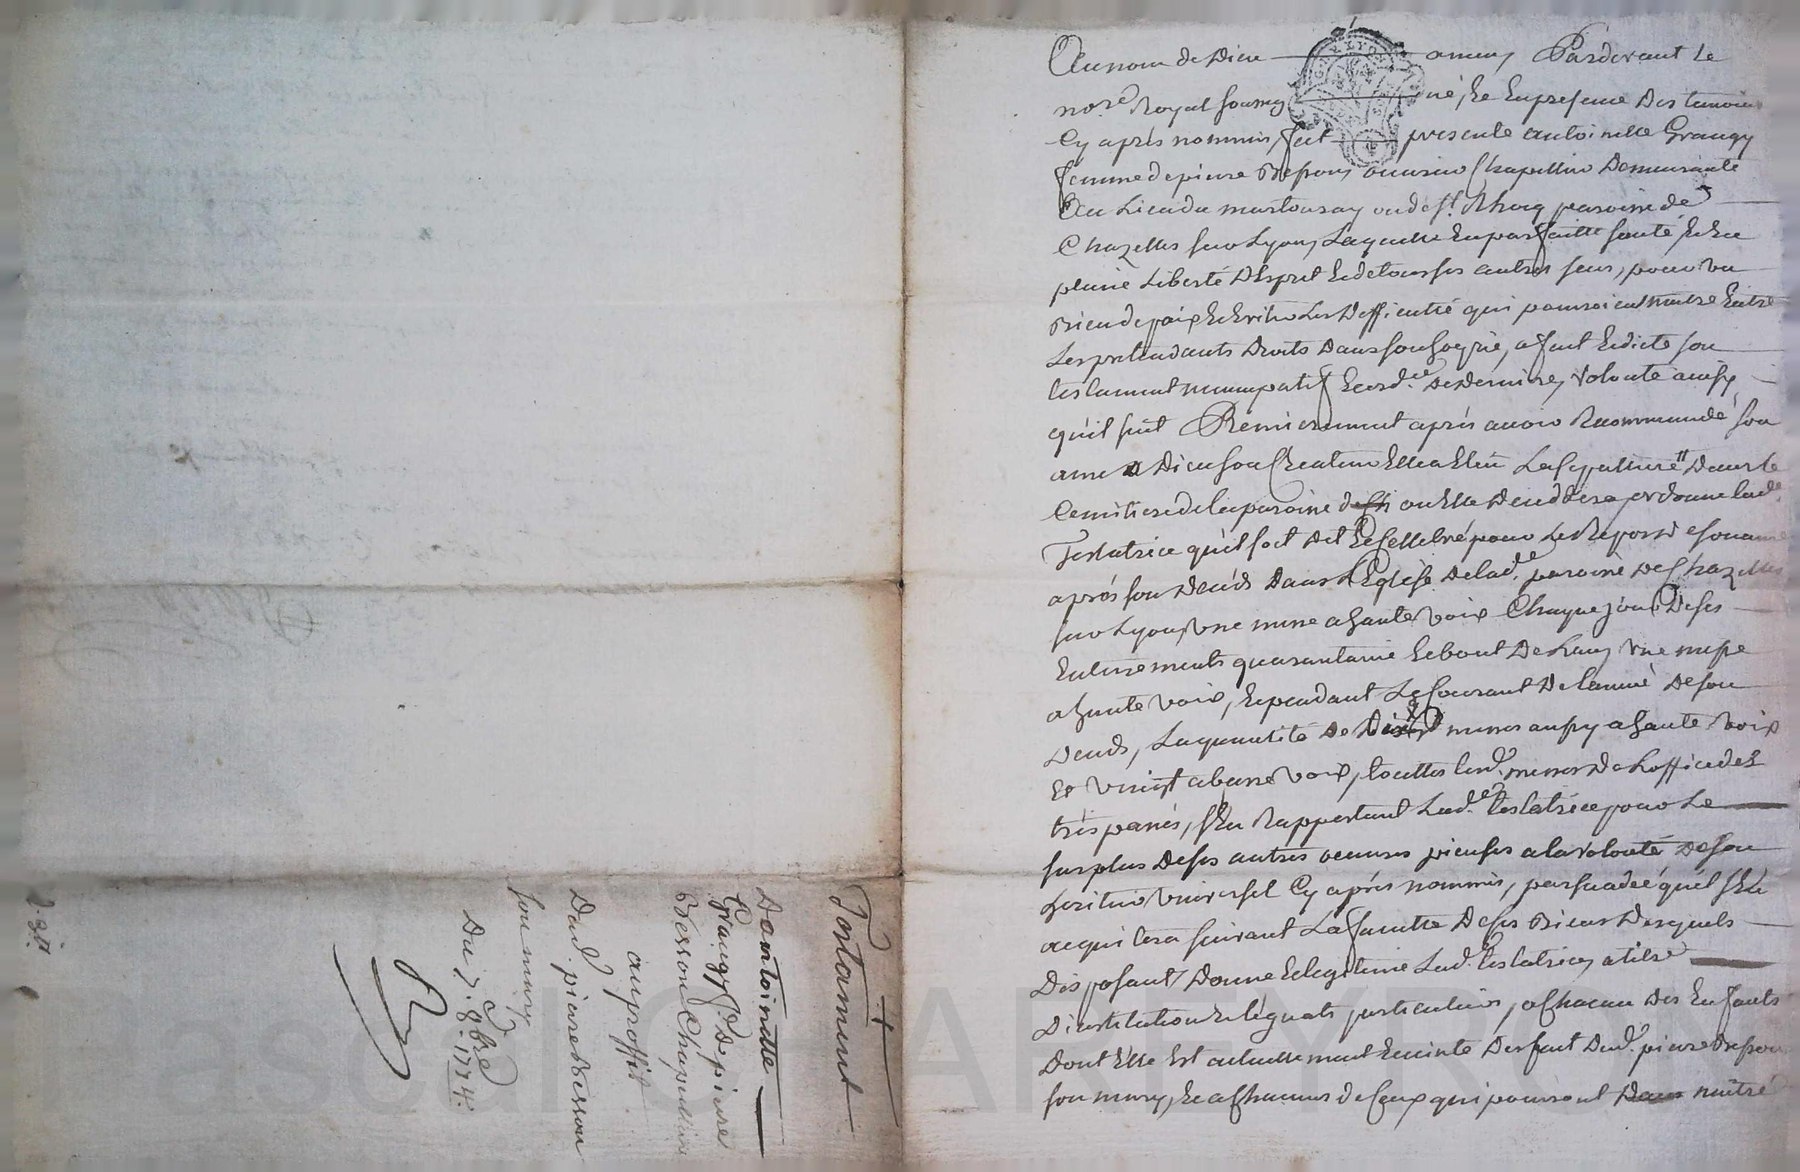 Au nom de Dieu amen, Pardevant le
no.re Royal soussigné, Et En presence Des temoins
Cy après nommés, fut presente antoinette Grangy
femme de pierre Besson ouvrier Chapellier Demeurante
Au Lieu du martouray paroisse de
Chazelles sur Lyon, Laquelle En parfaitte santé, Et En
pleine Liberté D'Esprit Et de tous ses autres sens, pour un
Bien de paix Et Eviter Les Difficultés qui pourroient naitre Entre
Les prétendants Droits Dans son hoyrie, a fait Et dicté son
testament nuncupatif Et ord.ce De Derniere volonté ainsy
qu'il suit Premierement après avoir Recommandé son
ame a Dieu son Createur Elle a Elu La sepulture Dans le
Cemitiere de la paroisse ou Elle Decedera, ordonne lad.e
Testatrice qu'il soit Dit Et Cellebré pour Le Repos De son ame
après son Decès Dans L'Eglise De lad.e paroisse De Chazelles
sur Lyon, une messe a haute voix Chaque jour De ses
Enterrements quarantaine Et bout De L'an, une messe
a haute voix, Et pendant Le Courant De l'année De son
Decès, La quantité De Dix messes aussy a haute voix
Et vingt a basse voix, touttes lesd.es messes De L'office des
trépassés, s'En Rapportant Lad.e testatrice pour Le
surplus De ses autres oeuvres pieuses a la volonté De son
héritier universel Cy après nommé, persuadée qu'il s'En
acquitera suivant La faculté De ses Biens Desquels
Disposant, Donne Et legue Lad.e testatrice, a titre
D'institution Et légats particuliers, a Chacun Des Enfants
Dont Elle Est actuellement Enceinte Des faits Dud. pierre Besson
son mary, Et a Chacuns de Ceux qui pourront naitre
Testament
D'antoinette
Grangy f.e De pierre
Besson Chapellier
au proffit
Dud. pierre Besson
son mary
Du 7. 8bre 1774.